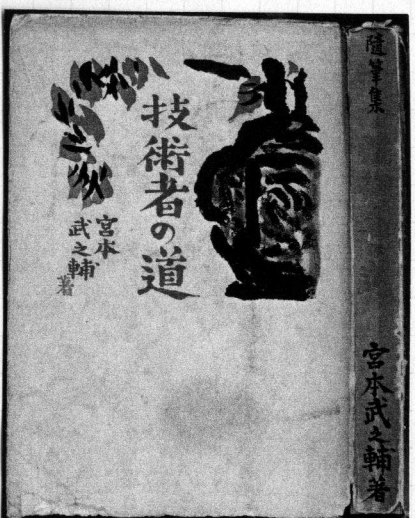 技術者の道
宮本
武之輔
著
随筆集
宮本武之輔著